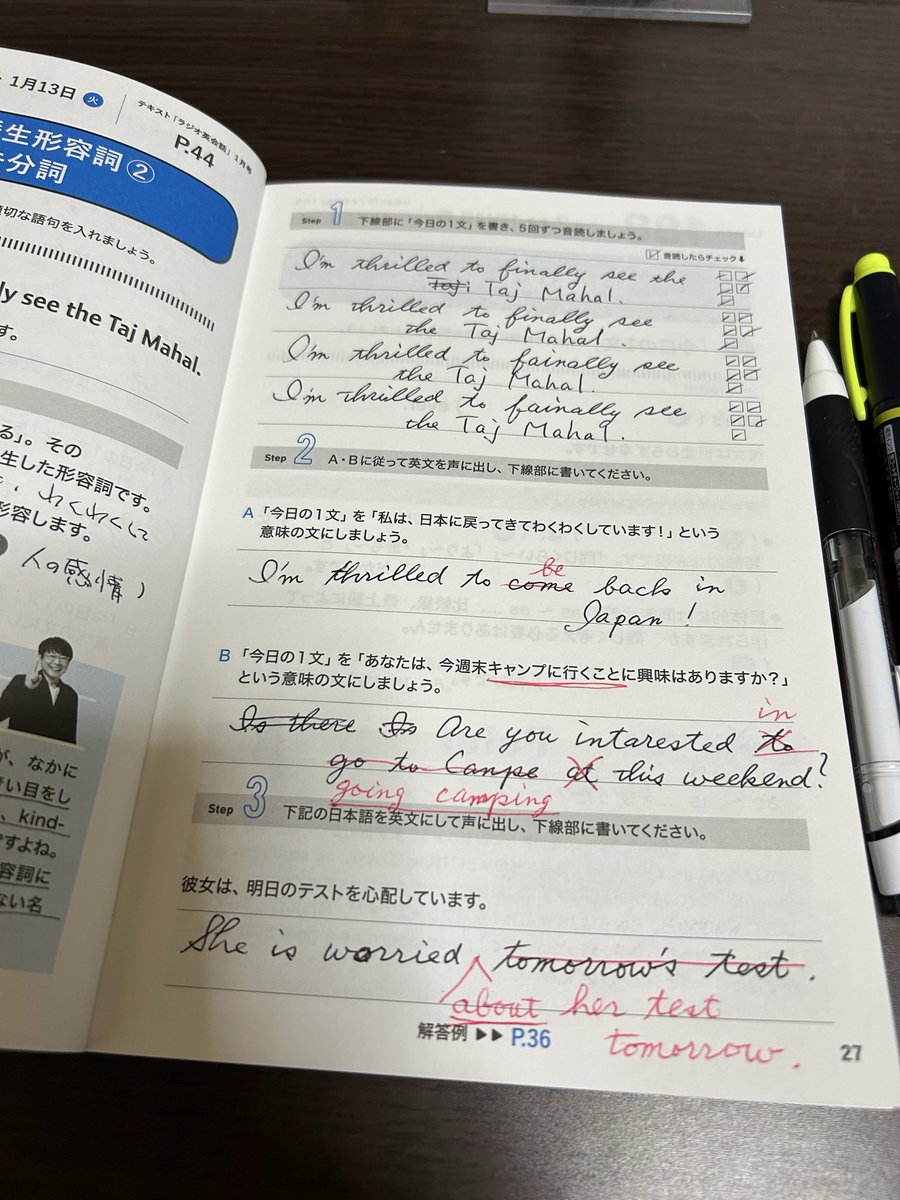 1月13日 火
テキスト「ラジオ英会話」1月号
P.44
生形容詞②
分詞
切な語句を入れましょう。
ly see the Taj Mahal.
す。
る」。その
生した形容詞です。
わくわくして
形容します。
人の感情)
が、なかに
い目をし
、kind-
ですよね。
容詞に
ない名
Step 1 下線部に「今日の1文」を書き、5回ずつ音読しましょう。
音読したらチェック
I'm thrilled to finally see the
Taji Taj Mahal.
I'm thrilled to finally see
the Taj Mahal.
I'm thrilled to fainally see
the Taj Mahal.
I'm thrulled to fainally see
the Taj Mahal.
Step 2 A・Bに従って英文を声に出し、下線部に書いてください。
A 「今日の1文」を「私は、日本に戻ってきてわくわくしています!」という
意味の文にしましょう。
be
I'm thrilled to come back in
Japan!
B 「今日の1文」を「あなたは、今週末キャンプに行くことに興味はありますか?」
という意味の文にしましょう。
in
Is there Is Are you intarested to
go to Canpe at this weekend?
going camping
Step 3 下記の日本語を英文にして声に出し、下線部に書いてください。
彼女は、明日のテストを心配しています。
She is worried tomorrow's test.
about her test
tomorrow.
解答例 ▶▶ P.36
27